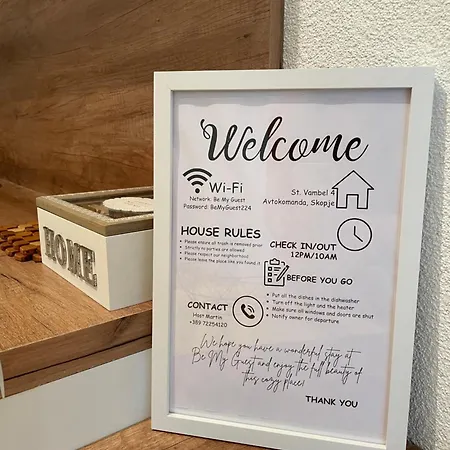 HOME
Welcome
Wi-Fi
Network: Be My Guest
Password: BeMyGuest224
St. Vambel 4
Avtokomanda, Skopje
HOUSE RULES
Please ensure all trash is removed prior
Strictly no parties are allowed
Please respect our neighborhood
Please leave the place like you found it
CHECK IN/OUT
12PM/10AM
BEFORE YOU GO
Put all the dishes in the dishwasher
Turn off the light and the heater
Make sure all windows and doors are shut
Notify owner for departure
CONTACT
Host Martin
+389 72254120
We hope you have a wonderful stay at
Be My Guest and enjoy the full beauty of
this cozy place!
THANK YOU